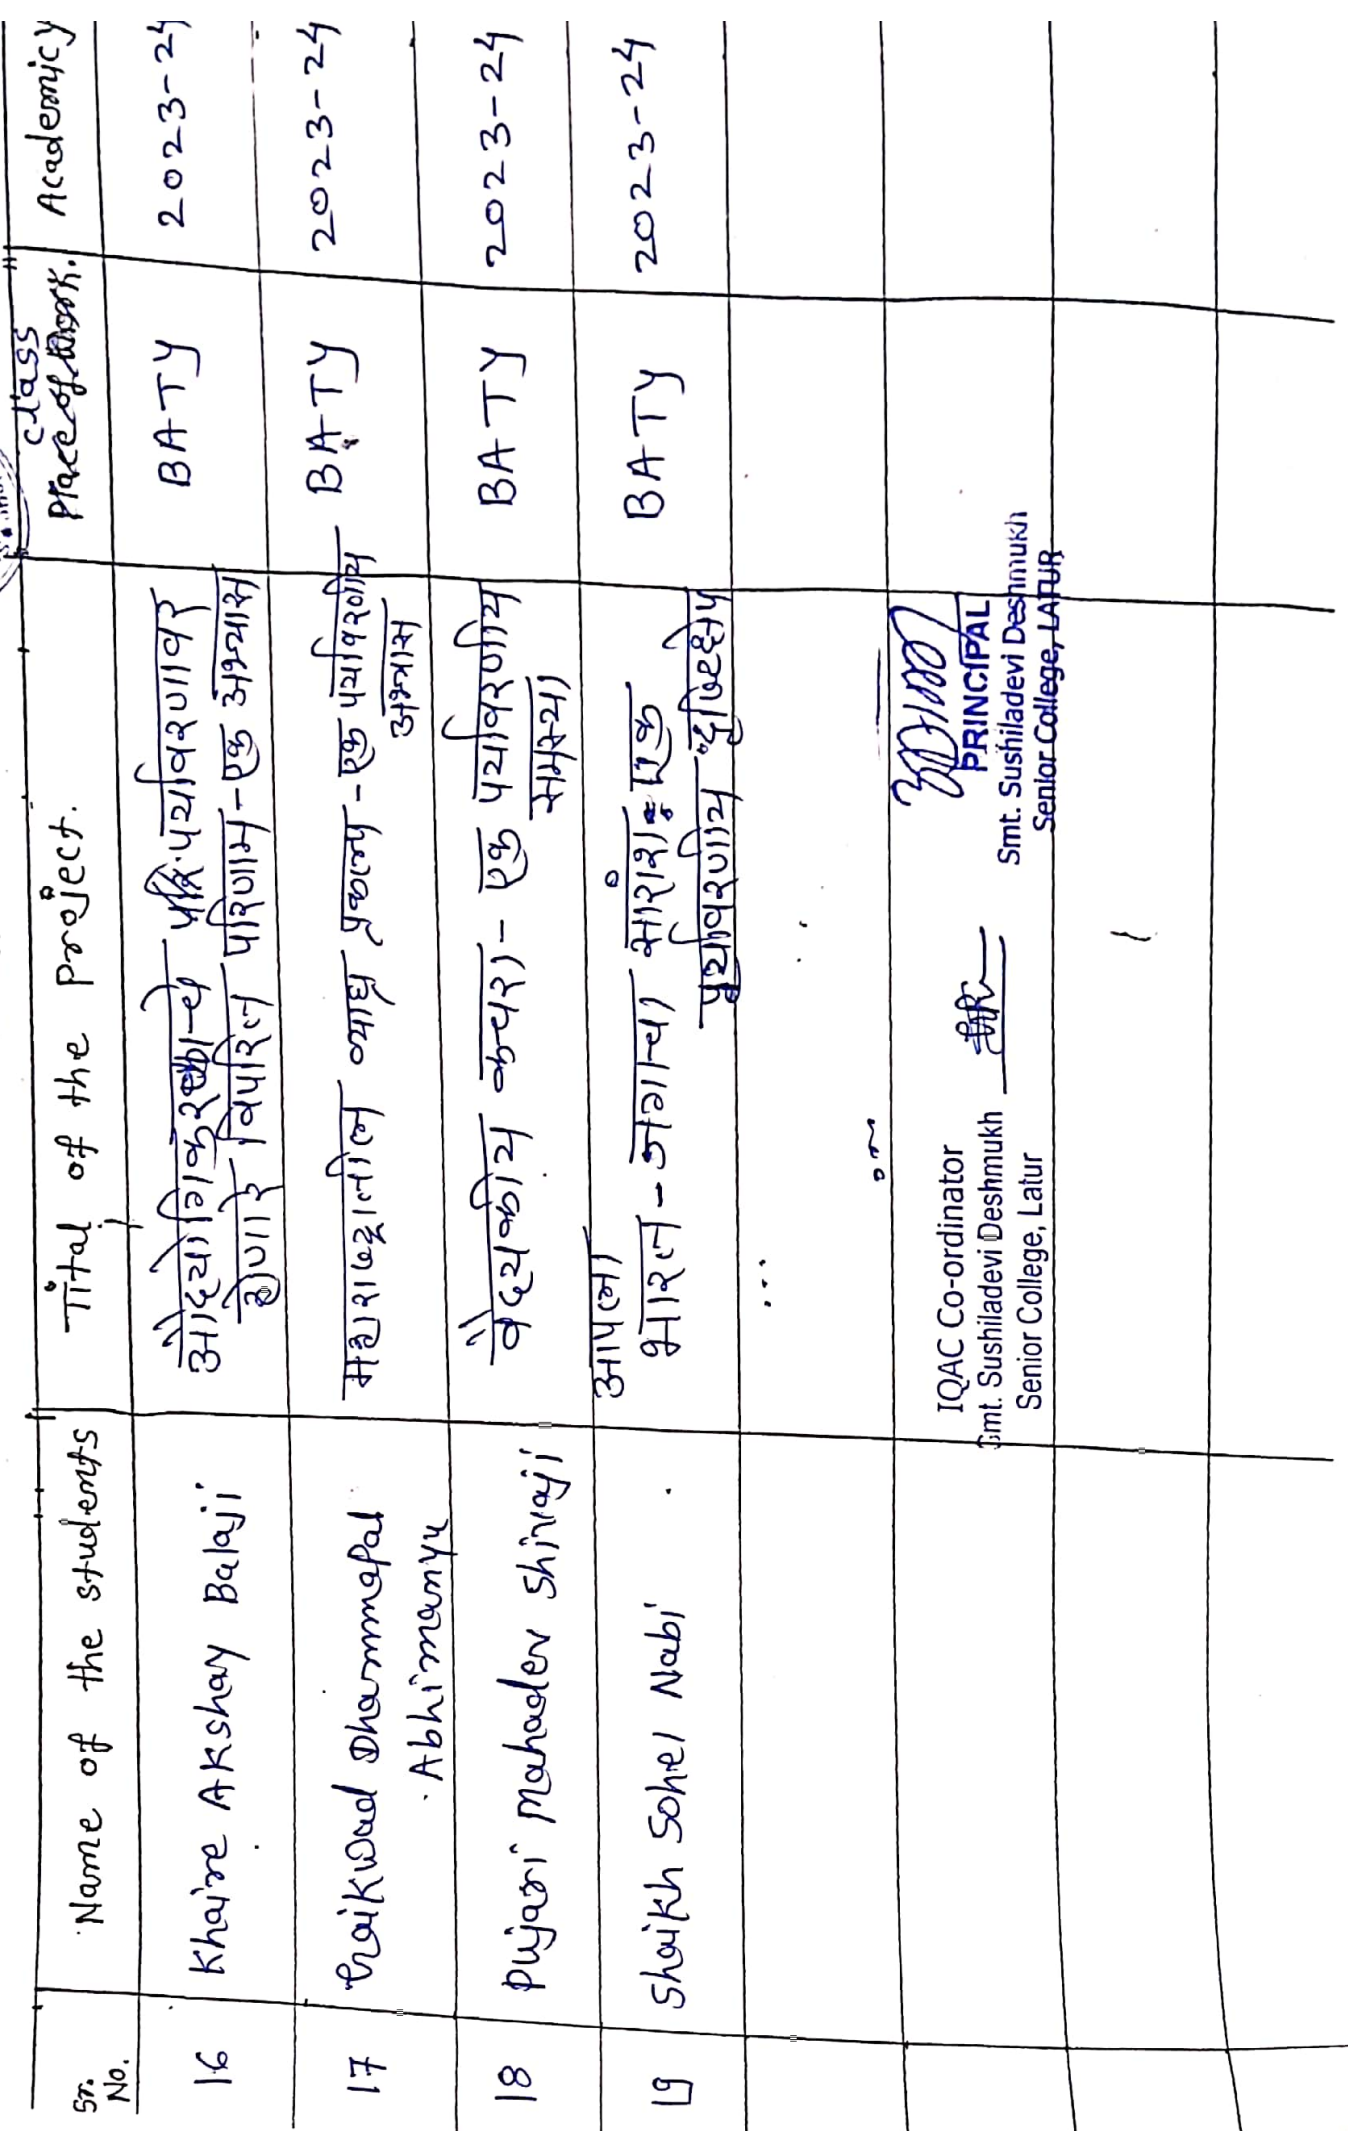 Sr. No.
Name of the students
Tital of the project.
class
Place of Work.
Academic y
16
Khaire Akshay Balaji
औद्योगिकरणाचे पर्यावरणावर
होणारे विपरित परिणाम - एक अभ्यास
BATY
2023-24
17
Gaikwad Dhammapal
Abhimanyu
महाराष्ट्रातील व्याघ्र प्रकल्प - एक पर्यावरणीय
अभ्यास
BATY
2023-24
18
Pujari Mahadev Shivaji
वैद्यकीय कचरा - एक पर्यावरणीय
समस्या
BATY
2023-24
19
Shaikh Sohel Nabi
आपला
भारत - जगाचा सारांश : एक
पर्यावरणीय दृष्टिक्षेप
BATY
2023-24
IQAC Co-ordinator
Smt. Sushiladevi Deshmukh
Senior College, Latur
PRINCIPAL
Smt. Sushiladevi Deshmukh
Senior College, LATUR